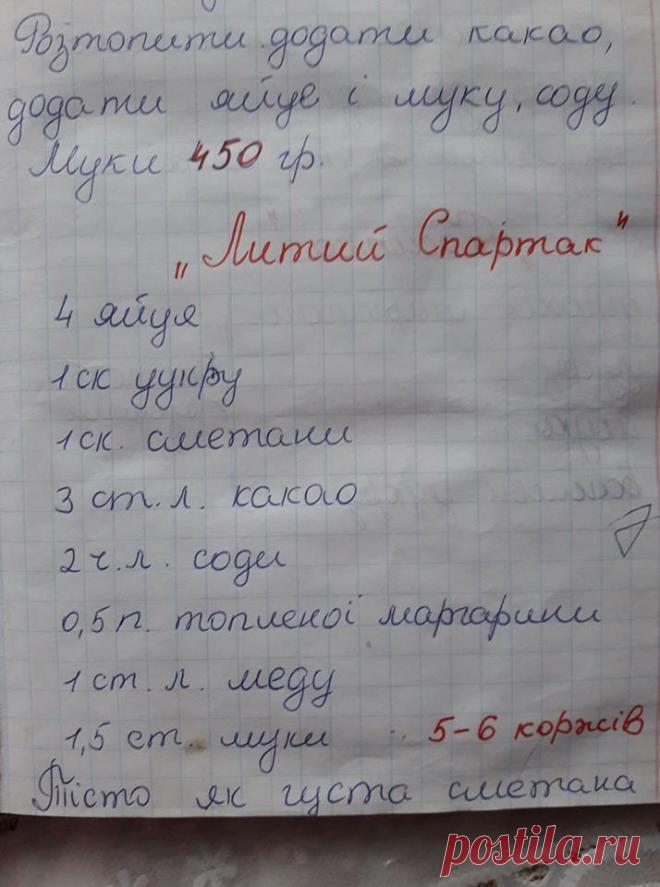 Розтопити додати какао,
додати яйце і муку, соду.
Муки 450 гр.
„Литий Спартак"
4 яйця
1ск цукру
1ск. сметани
3 ст. л. какао
2 ч. л. соди
0,5 п. топленої маргарини
1 ст. л. меду
1,5 ст. муки 5-6 коржів
Тісто як густа сметана
postila.ru